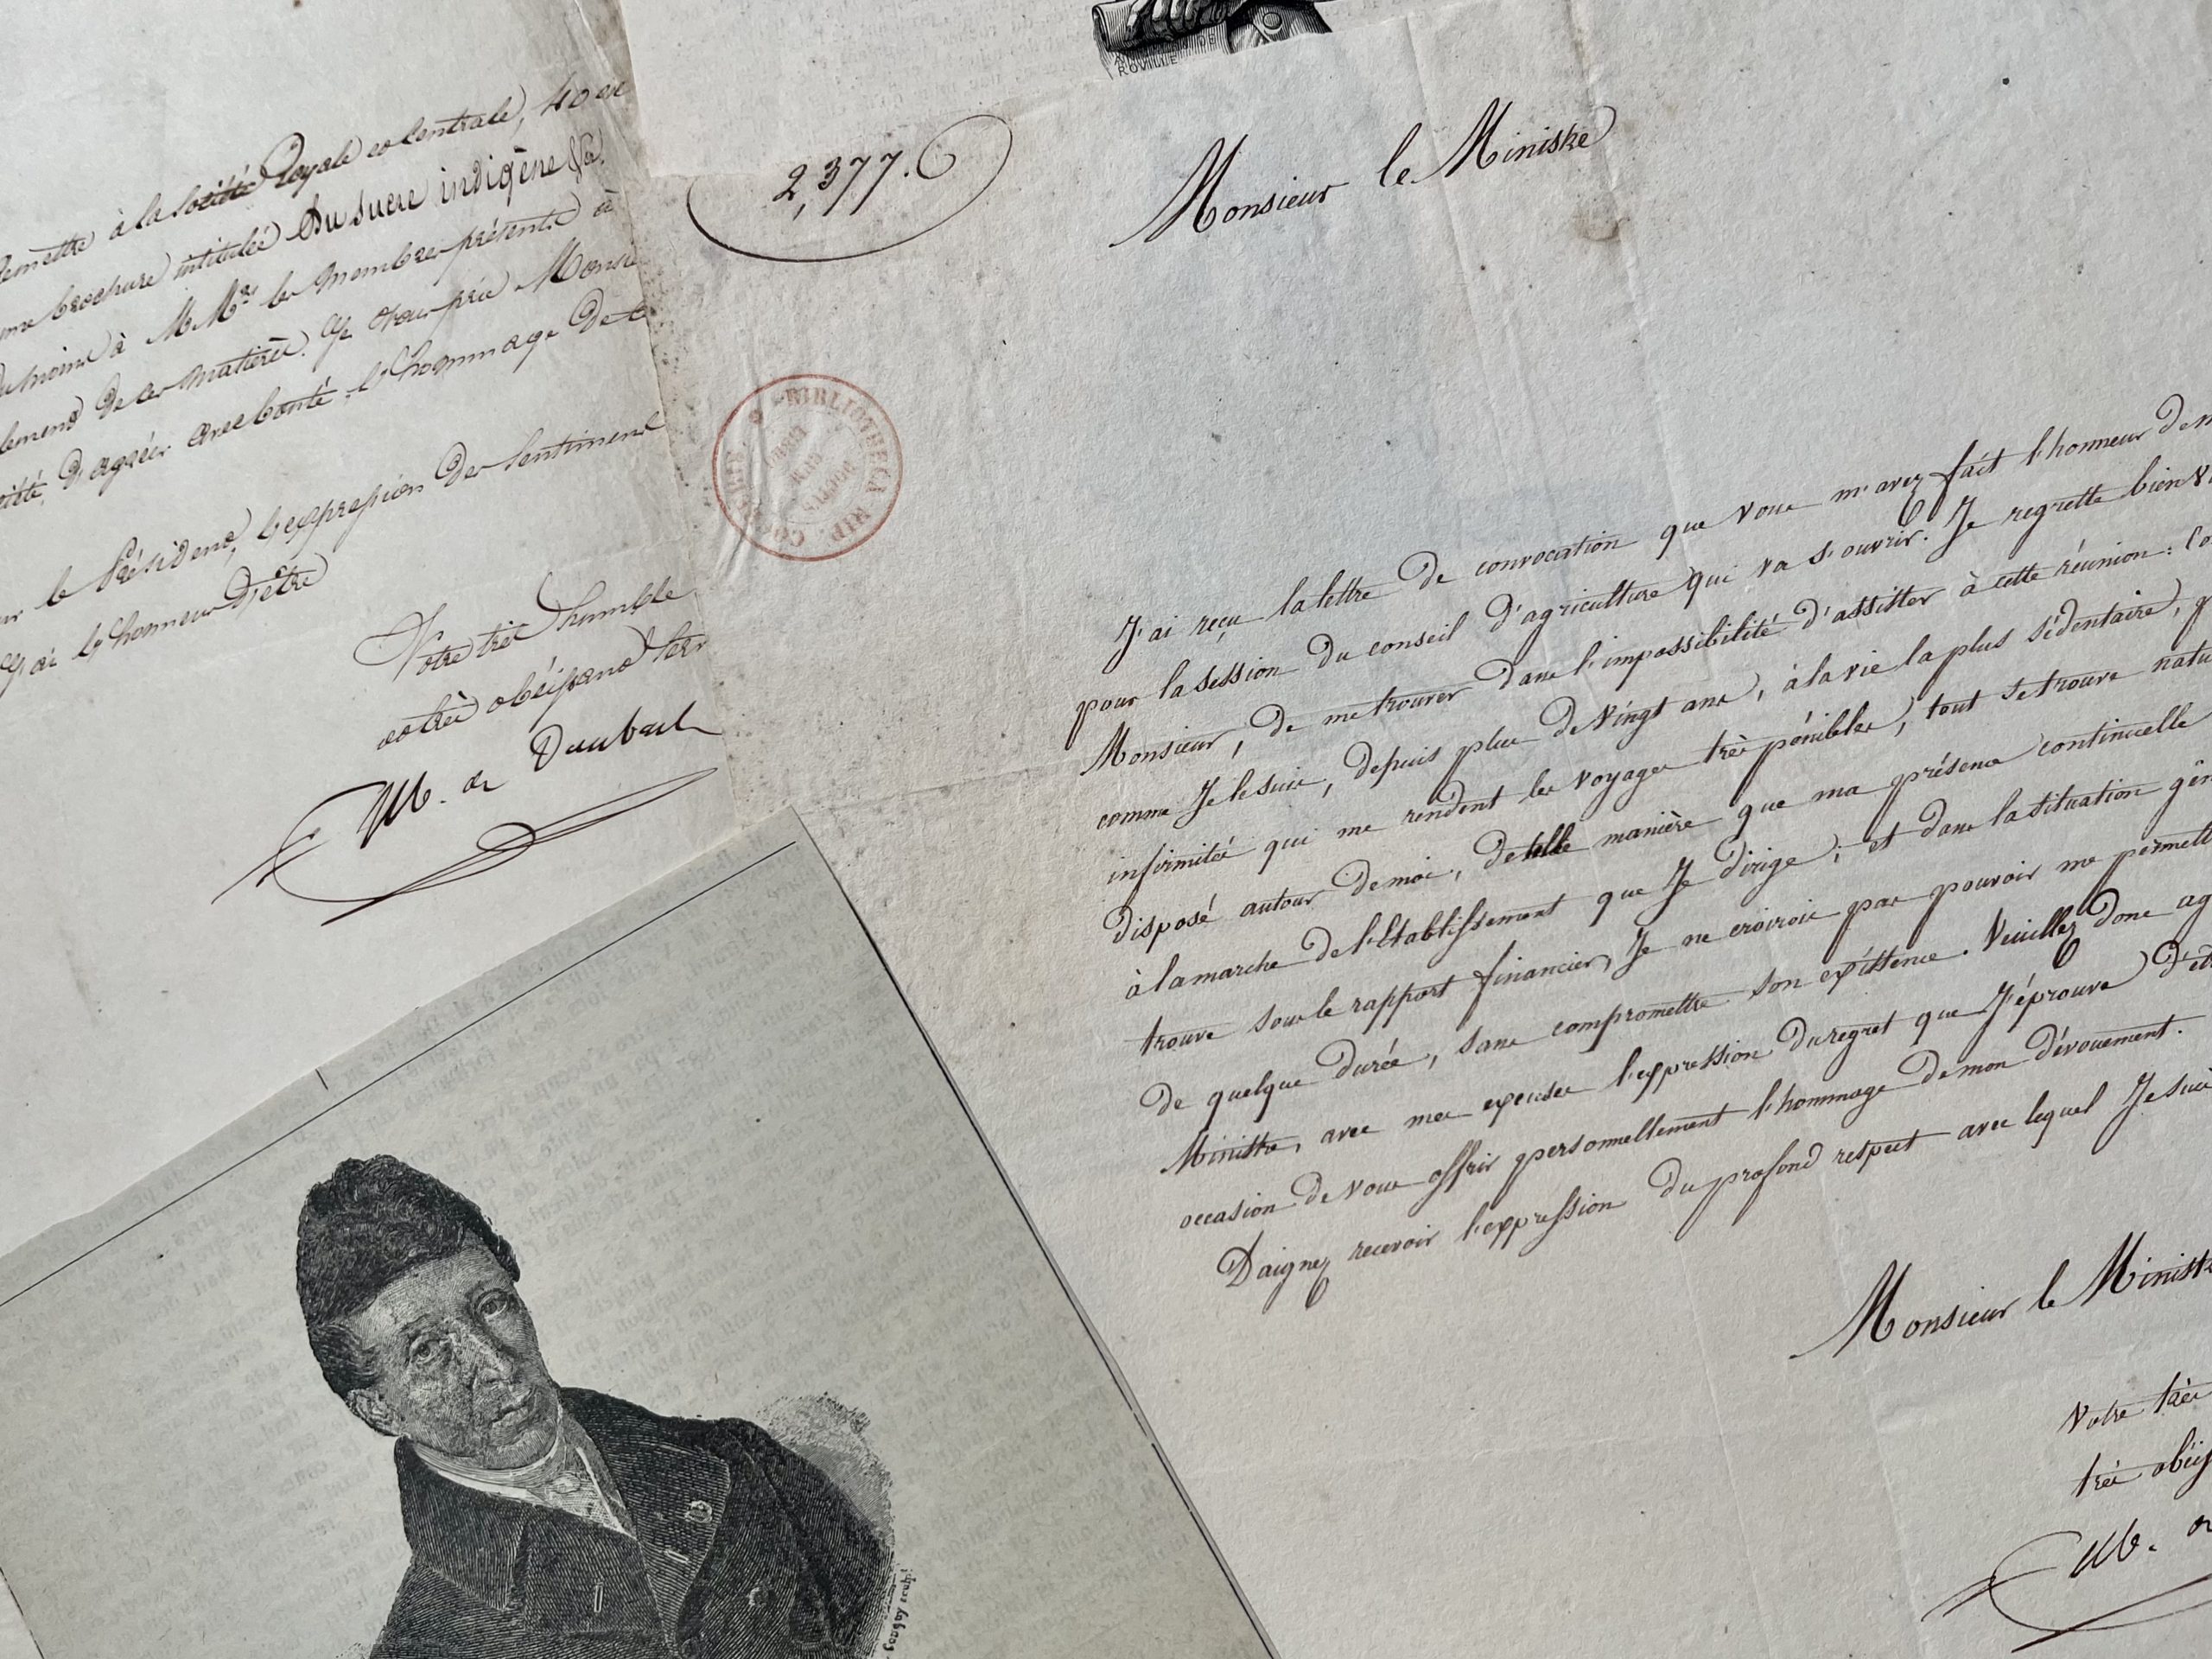 remettre à la Société Royale et Centrale, 40 ex
ma brochure intitulée Du sucre indigène &a.
du moins à MMrs les membres présents à
de ces matières. Je vous prie Monsie
d'agréer avec bonté l'hommage de
le Président, l'expression des sentimens
j'ai l'honneur d'être
Votre très humble
et très obéissant serv
M. de Dombasle
ROVILLE
2,377.
Monsieur le Ministre
BIBLIOTHECA
J'ai reçu la lettre de convocation que vous m'avez fait l'honneur de m
pour la session du conseil d'agriculture qui va s'ouvrir. Je regrette bien v
Monsieur, de me trouver dans l'impossibilité d'assister à cette réunion : Co
comme je le suis, depuis plus de vingt ans, à la vie la plus sédentaire, p
infirmités qui me rendent les voyages très pénibles, tout se trouve natu
disposé autour de moi, de telle manière que ma présence continuelle
à la marche de l'établissement que je dirige; et dans la situation gên
trouve sous le rapport financier, je ne croirois pas pouvoir me permett
de quelque durée, sans compromettre son existence. Veuillez donc ag
Ministre, avec mes excuses l'expression du regret que j'éprouve d'êt
occasion de vous offrir personnellement l'hommage de mon dévouement.
Daignez recevoir l'expression du profond respect avec lequel Je suis
Monsieur le Minist
Votre très
très obéis
M. de